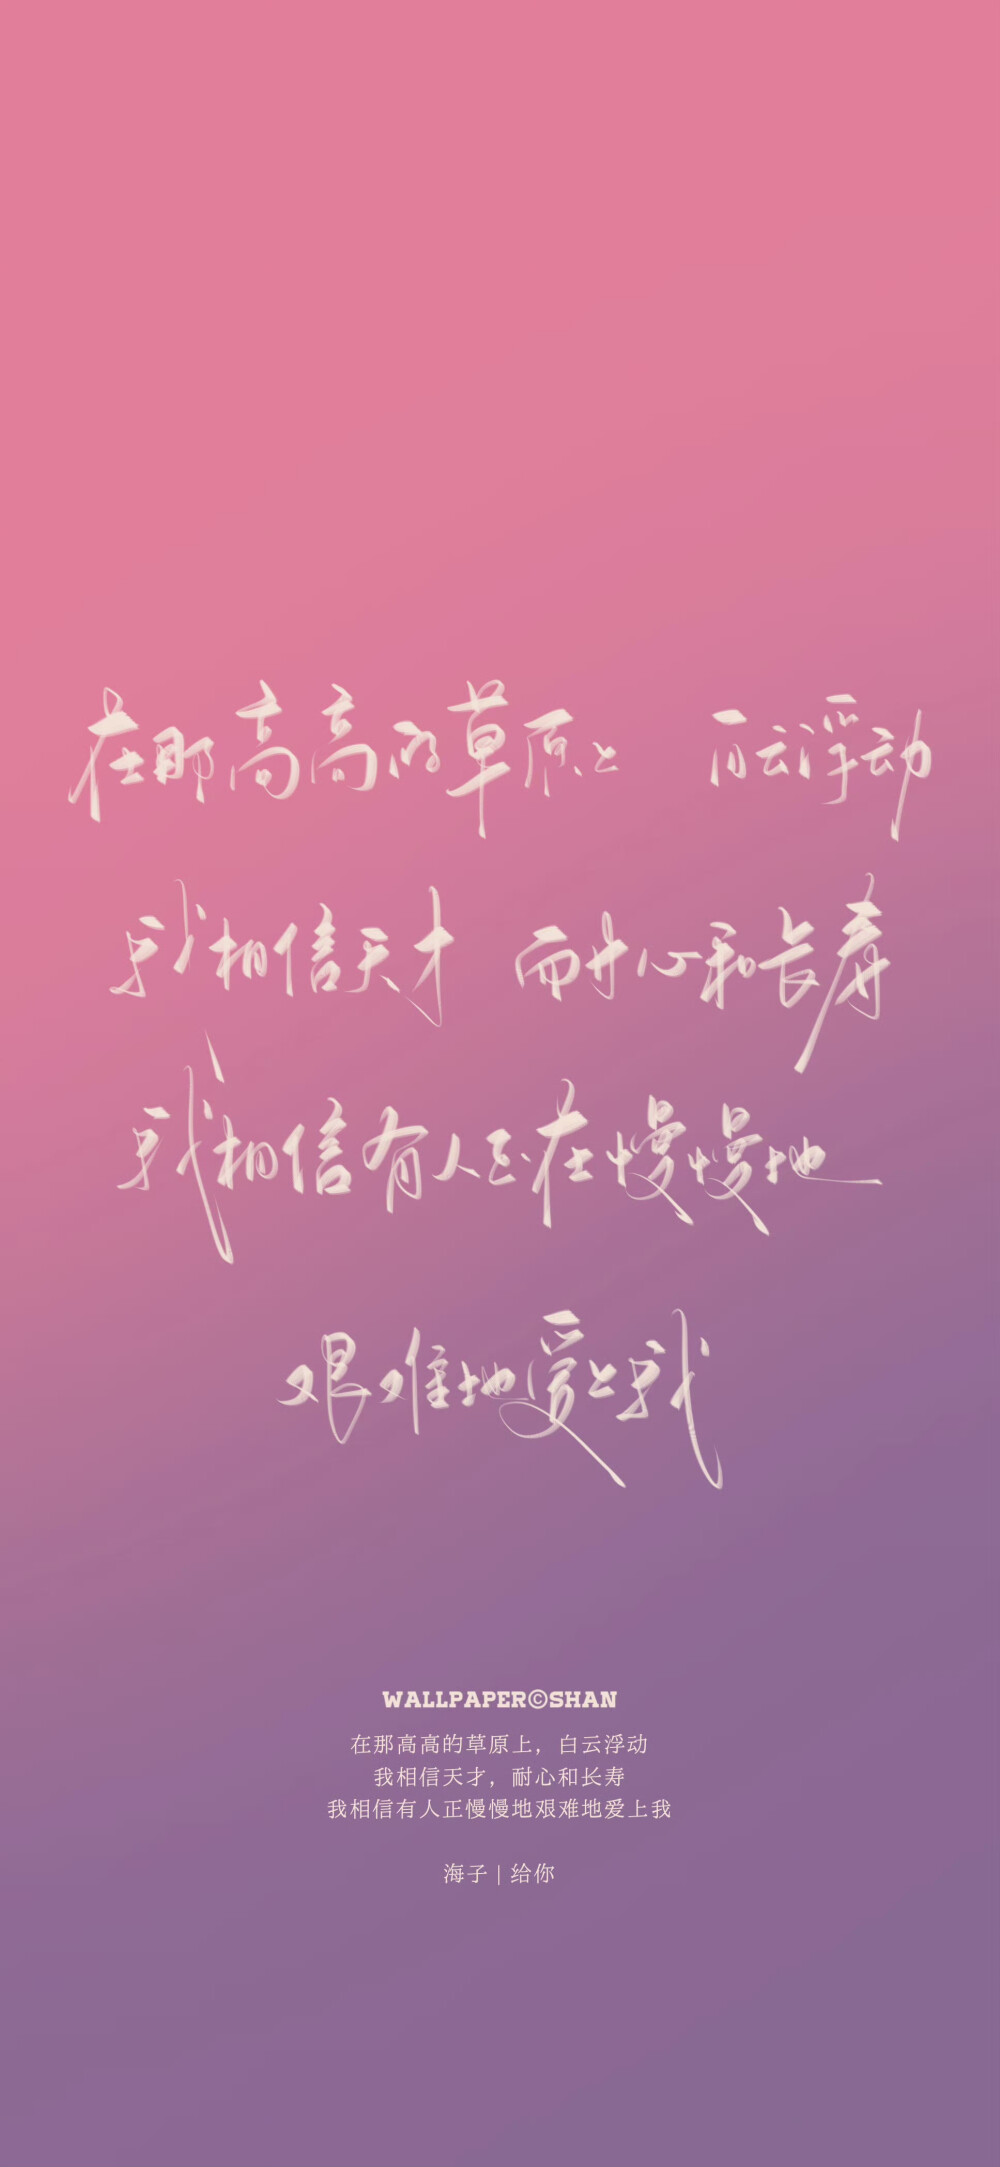 在那高高的草原上 白云浮动
我相信天才 耐心和长寿
我相信有人正在慢慢地
艰难地爱上我
WALLPAPER©SHAN
在那高高的草原上，白云浮动
我相信天才，耐心和长寿
我相信有人正慢慢地艰难地爱上我
海子 | 给你